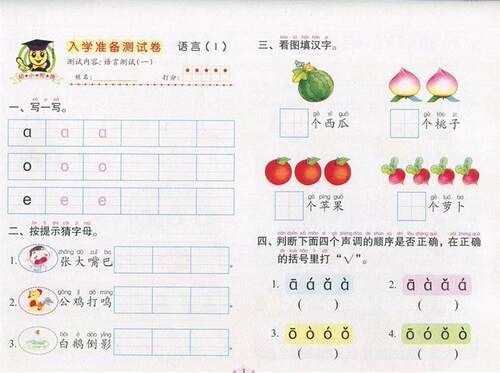 入学准备测试卷 语言(1)
测试内容:语言测试(一)
姓名: 打分: ★★★★★
一、写一写。
ɑ ɑ ɑ
o o o
e e e
二、按提示猜字母。
1. 张大嘴巴
2. 公鸡打鸣
3. 白鹅倒影
三、看图填汉字。
个西瓜 个桃子
个苹果 个萝卜
四、判断下面四个声调的顺序是否正确,在正确
的括号里打“√”。
1. ā á ǎ à 2. ā à ǎ á
( ) ( )
3. ō ò ó ǒ 4. ō ó ǒ ò
( ) ( )
1